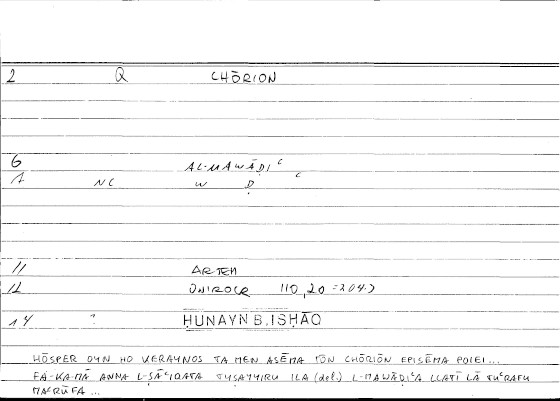 2 Q CHŌRION
6 AL-MAWĀḌIʿ
1 NC W Ḍ ʿ
11 ARTEM
12 ONIROCR 110,20 =204.)
14 ? ḤUNAYN B. ISḤĀQ
HŌSPER OYN HO KERAYNOS TA MEN ASĒMA TŌN CHŌRIŌN EPISĒMA POIEI...
FA-KA-MĀ ANNA L-ṢĀʿIQATA TUṢAYYIRU ILA (del.) L-MAWĀḌIʿA LLATĪ LĀ TUʿRAFU
MAʿRŪFA ...